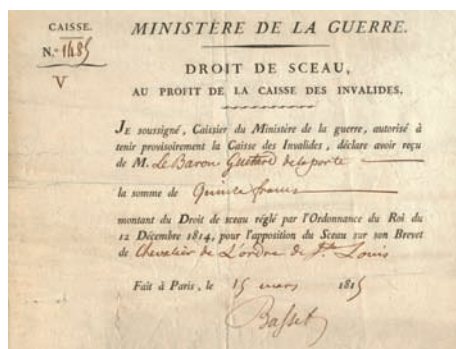 CAISSE.
N.° 1485
V
MINISTÈRE DE LA GUERRE.
DROIT DE SCEAU,
AU PROFIT DE LA CAISSE DES INVALIDES.
JE soussigné, Caissier du Ministère de la guerre, autorisé à
tenir provisoirement la Caisse des Invalides, déclare avoir reçu
de M. Le Baron Gustave de la porte
la somme de Quinze francs
montant du Droit de sceau réglé par l'Ordonnance du Roi du
12 Décembre 1814, pour l'apposition du Sceau sur son Brevet
de Chevalier de L'ordre de St. Louis
Fait à Paris, le 15 mars 1815
Basset